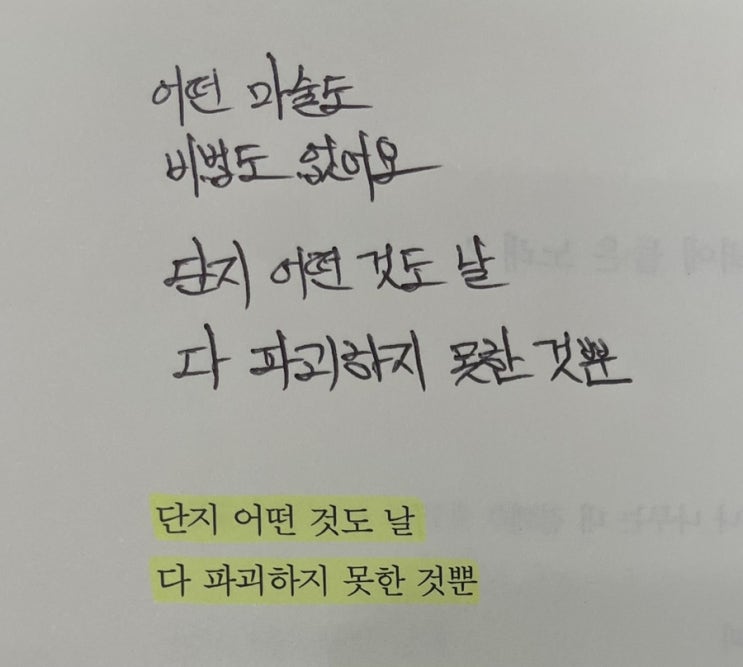 어떤 마술도
비법도 없어요
단지 어떤 것도 날
다 파괴하지 못한 것뿐
단지 어떤 것도 날
다 파괴하지 못한 것뿐